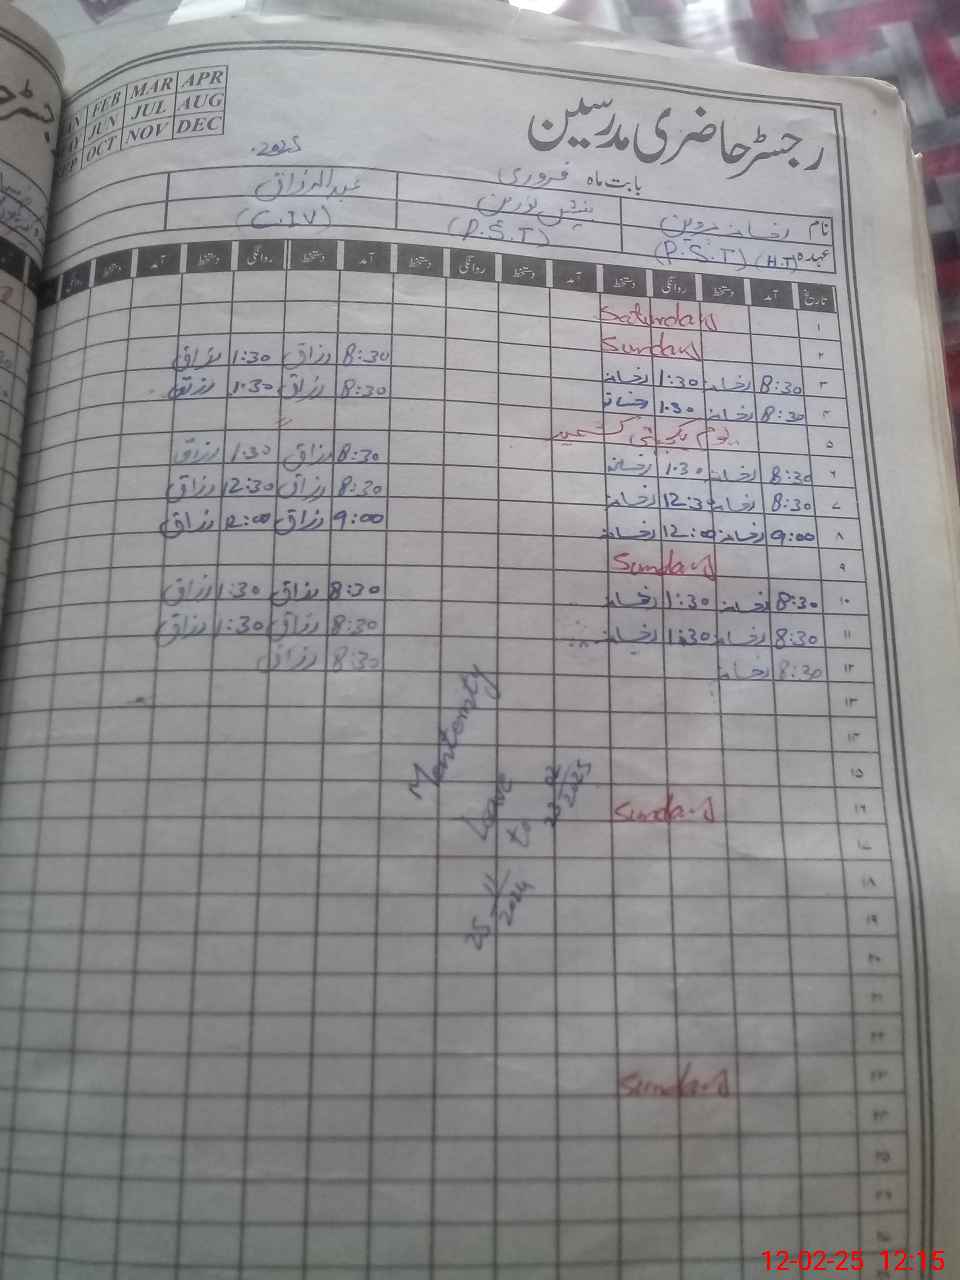 رجسٹر حاضری مدرسین
FEB MAR APR
JUN JUL AUG
OCT NOV DEC
بابت ماہ فروری 2025
نام رخسانہ پروین عبدالرزاق
عہدہ (P.S.T) (H.T) (P.S.T) (C.IV)
تاریخ آمد دستخط روانگی دستخط آمد دستخط روانگی دستخط آمد دستخط روانگی دستخط آمد دستخط
۱ Saturday
۲ Sunday
۳ 8:30 رخسانہ 1:30 رخسانہ 8:30 رزاق 1:30 رزاق
۴ 8:30 رخسانہ 1:30 رخسانہ 8:30 رزاق 1:30 رزاق
۵ یوم یکجہتی کشمیر "
۶ 8:30 رخسانہ 1:30 رخسانہ 8:30 رزاق 1:30 رزاق
۷ 8:30 رخسانہ 12:30 رخسانہ 8:30 رزاق 12:30 رزاق
۸ 9:00 رخسانہ 12:00 رخسانہ 9:00 رزاق 12:00 رزاق
۹ Sunday
۱۰ 8:30 رخسانہ 1:30 رخسانہ 8:30 رزاق 1:30 رزاق
۱۱ 8:30 رخسانہ 1:30 رخسانہ 8:30 رزاق 1:30 رزاق
۱۲ 8:30 رخسانہ 8:30 رزاق
۱۳
۱۴
۱۵
۱۶ Sunday
۱۷
۱۸
۱۹
۲۰
۲۱
۲۲
۲۳ Sunday
۲۴
۲۵
۲۶
۲۷
Leave
25 11/2024 to 23 02/2025
12-02-25 12:15